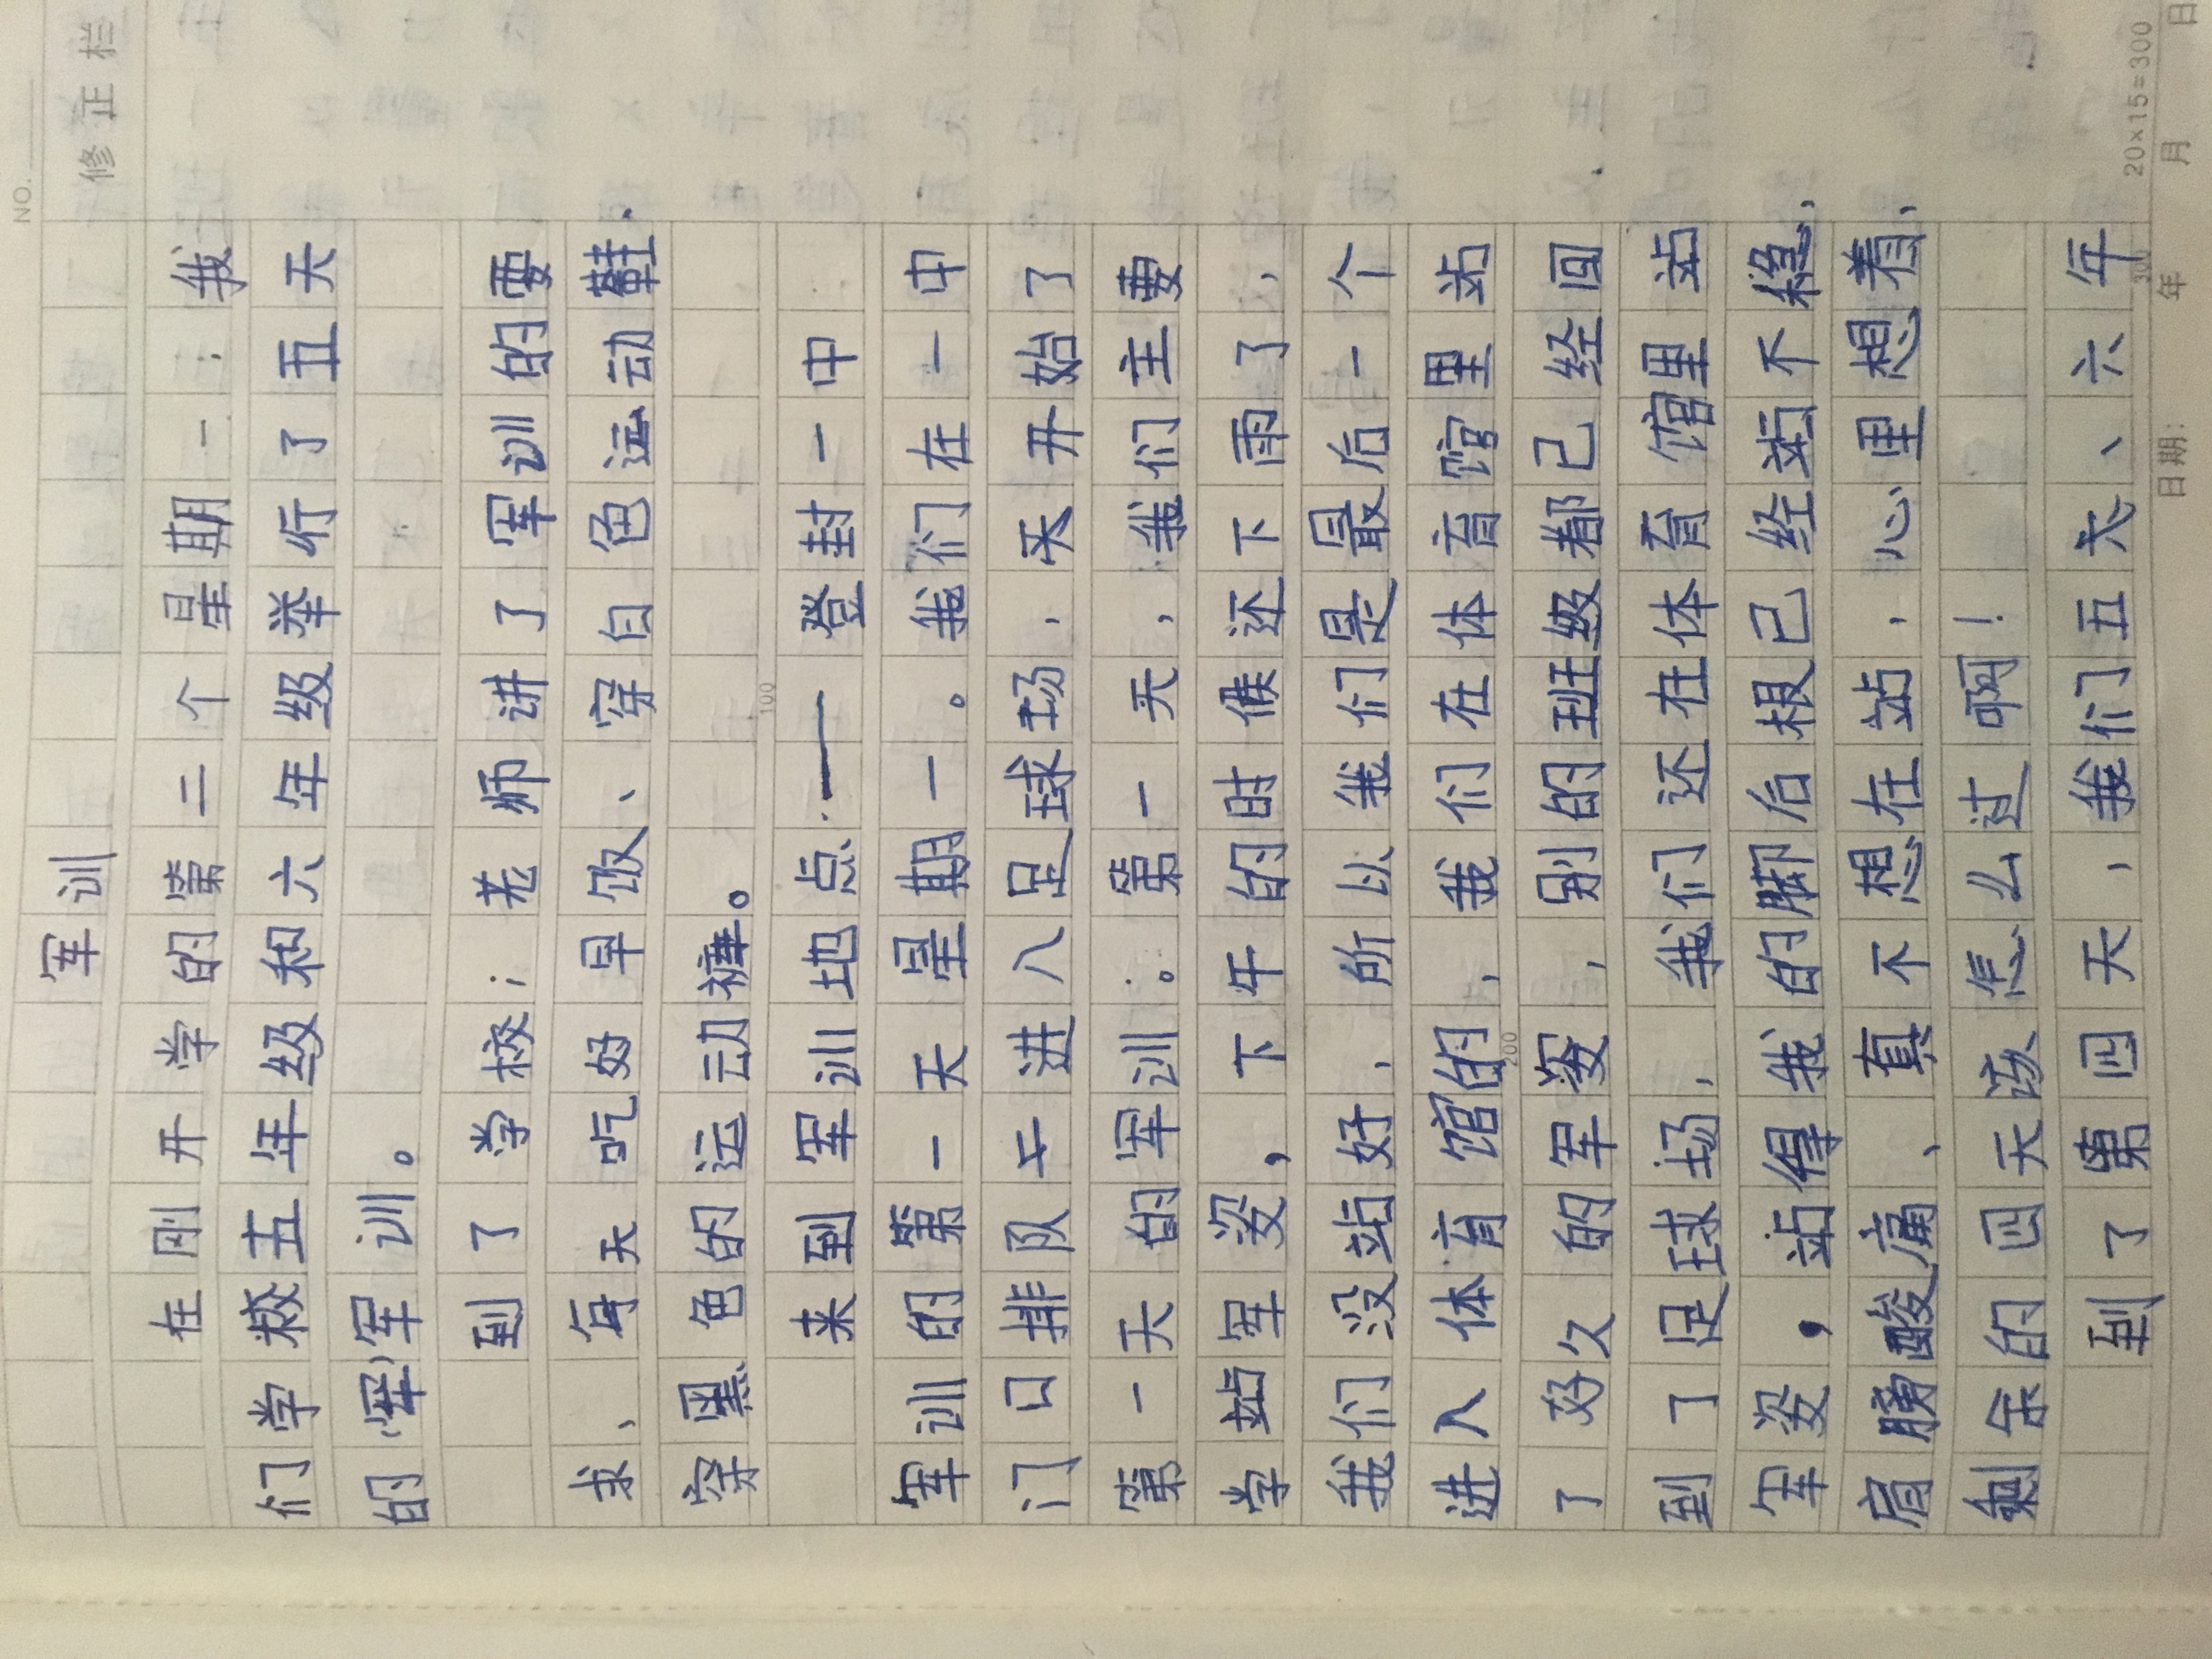 NO.
修正栏
军训
在刚开学的第二个星期一;我
们学校五年级和六年级举行了五天
的军军训。
到了学校;老师讲了军训的要
求、每天吃好早饭、穿白色运动鞋.
穿黑色的运动裤。
来到军训地点——登封一中
军训的第一天星期一。我们在一中
门口排队十进入足球场,天开始了
第一天的军训。第一天,我们主要
学站军姿,下午的时候还下雨了,
我们没站好,所以我们是最后一个
进入体育馆的,我们在体育馆里站
了好久的军姿,别的班级都已经回
到了足球场,我们还在体育馆里站
军姿,站得我的脚后根已经站不稳,
肩膀酸痛、真不想在站,心里想着,
剩余的四天该怎么过啊!
到了第四天,我们五天、六年
100
200
300
20×15=300
日期: 年 月 日